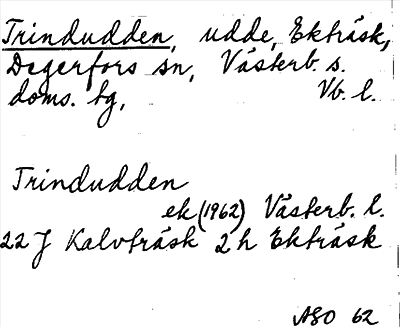 Trindudden, udde, Ekträsk,
Degerfors sn, Västerb. s.
doms. tg, Vb. l.
Trindudden
ek (1962) Västerb. l.
22 J Kalvträsk 2 h Ekträsk
ASO 62